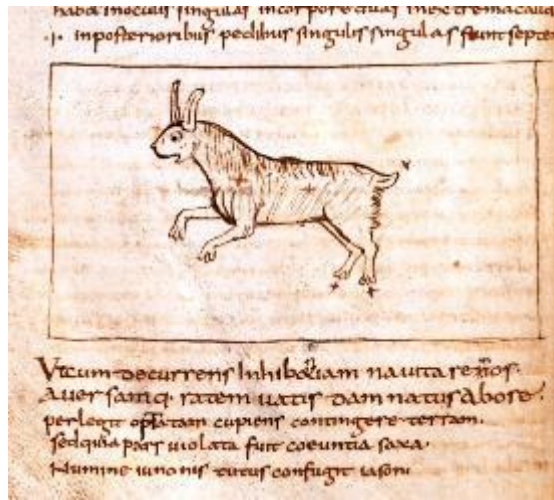 habet inoculis singulas incorpore duas inextrema cauda
.i. inposterioribus pedibus singulis singulas fiunt septem
Utcum decurrens Inhibet iam nauita remos.
Auersamq. ratem uatis damnatus abore.
perlegit optatam cupiens contingere terram.
sed quia pars uiolata fuit coeuntia saxa.
Numine iunonis tutus confugit iason.